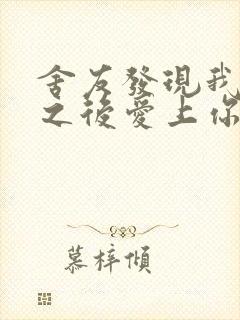 舍友發現我
之後愛上你
慕梓傾